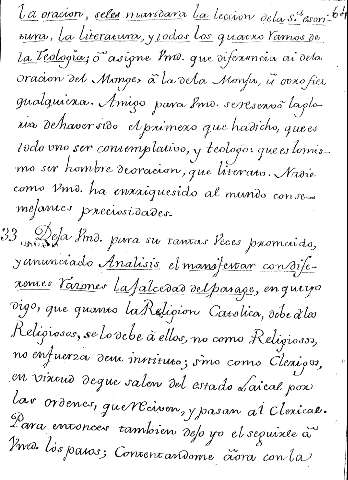 la oracion, se les mandara la leccion de la S.ta escri-
tura, la literatura, y todos los quatro Ramos de
la Teologia; o asigne Vmd. que diferencia ai de la
oracion del Monge, â la de la Monja, û otro fiel
qualquiera. Amigo para Vmd. se reservó la glo-
ria de haver sido el primero que ha dicho, que es
todo uno ser contemplativo, y teologo: que es lo mis-
mo ser hombre de oracion, que literato. Nadie
como Vmd. ha enrriquesido al mundo con se-
mejantes preciosidades.
33 Deja Vmd. para su tantas veces promovido,
y anunciado Analisis el manifestar con dife-
rentes razones la falcedad del parage, en que yo
digo, que quanto la Religion Catolica, debe à los
Religiosos, se lo debe à ellos, no como Religiosos,
no en fuerza de su instituto; sino como Clerigos,
en virtud de que salen del estado Laical por
las ordenes, que reciven, y pasan al Clerical.
Para entonces tambien dejo yo el seguirle â
Vmd. los pasos; Contentandome aôra con la